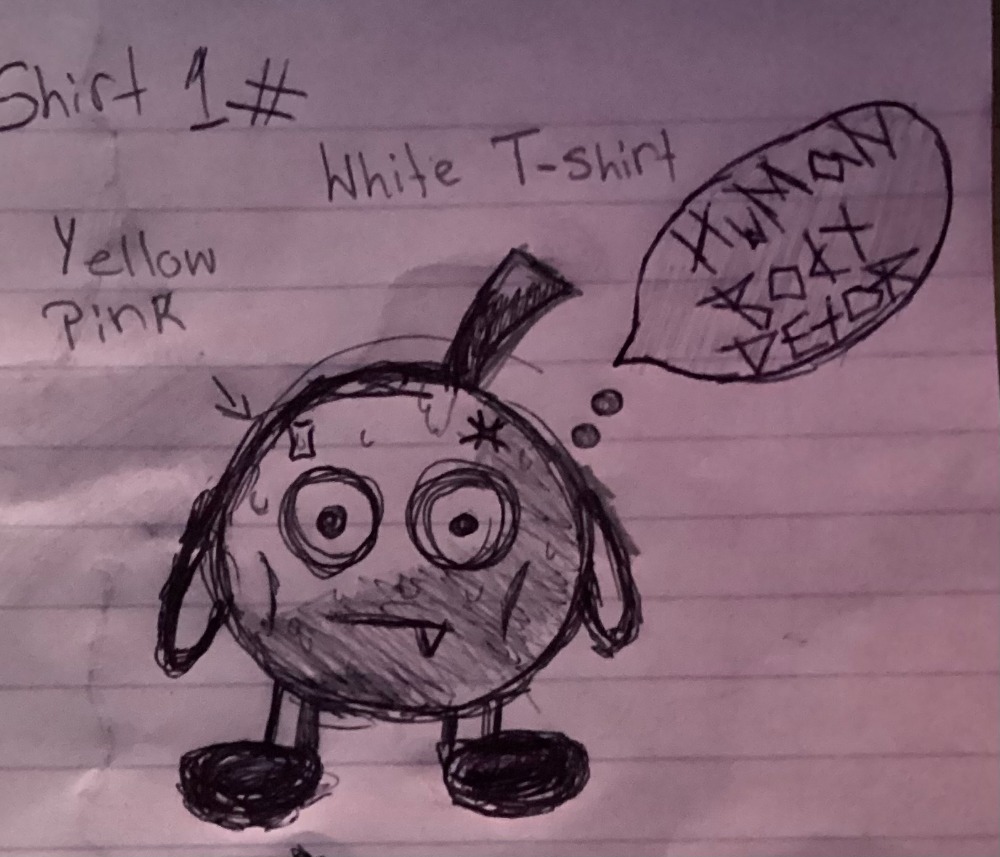 Shirt 1#
White T-shirt
Yellow
Pink
HWMaN
BOXT
DEtOR